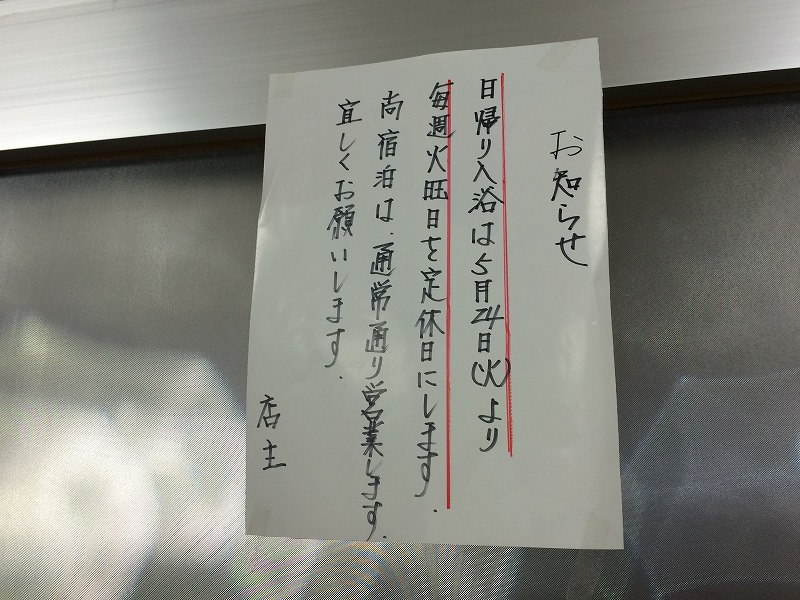 お知らせ
日帰り入浴は5月24日(火)より
毎週火曜日を定休日にします.
尚宿泊は、通常通り営業します.
宜しくお願いします.
店主